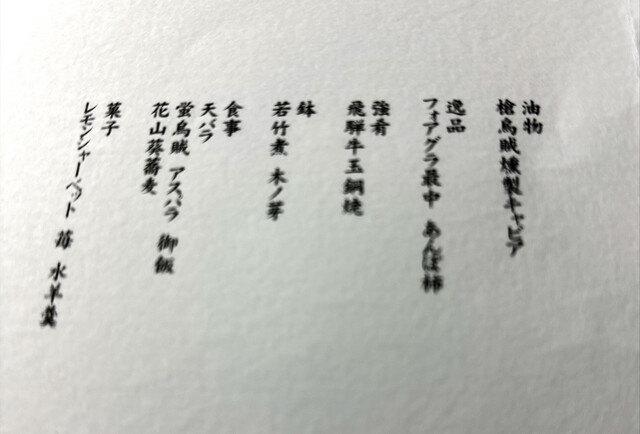 油物
槍烏賊燻製キャビア
逸品
フォアグラ最中 あんぽ柿
強肴
飛騨牛玉鋼焼
鉢
若竹煮 木ノ芽
食事
天バラ
蛍烏賊 アスパラ 御飯
花山葵蕎麦
菓子
レモンシャーベット 苺 水羊羹